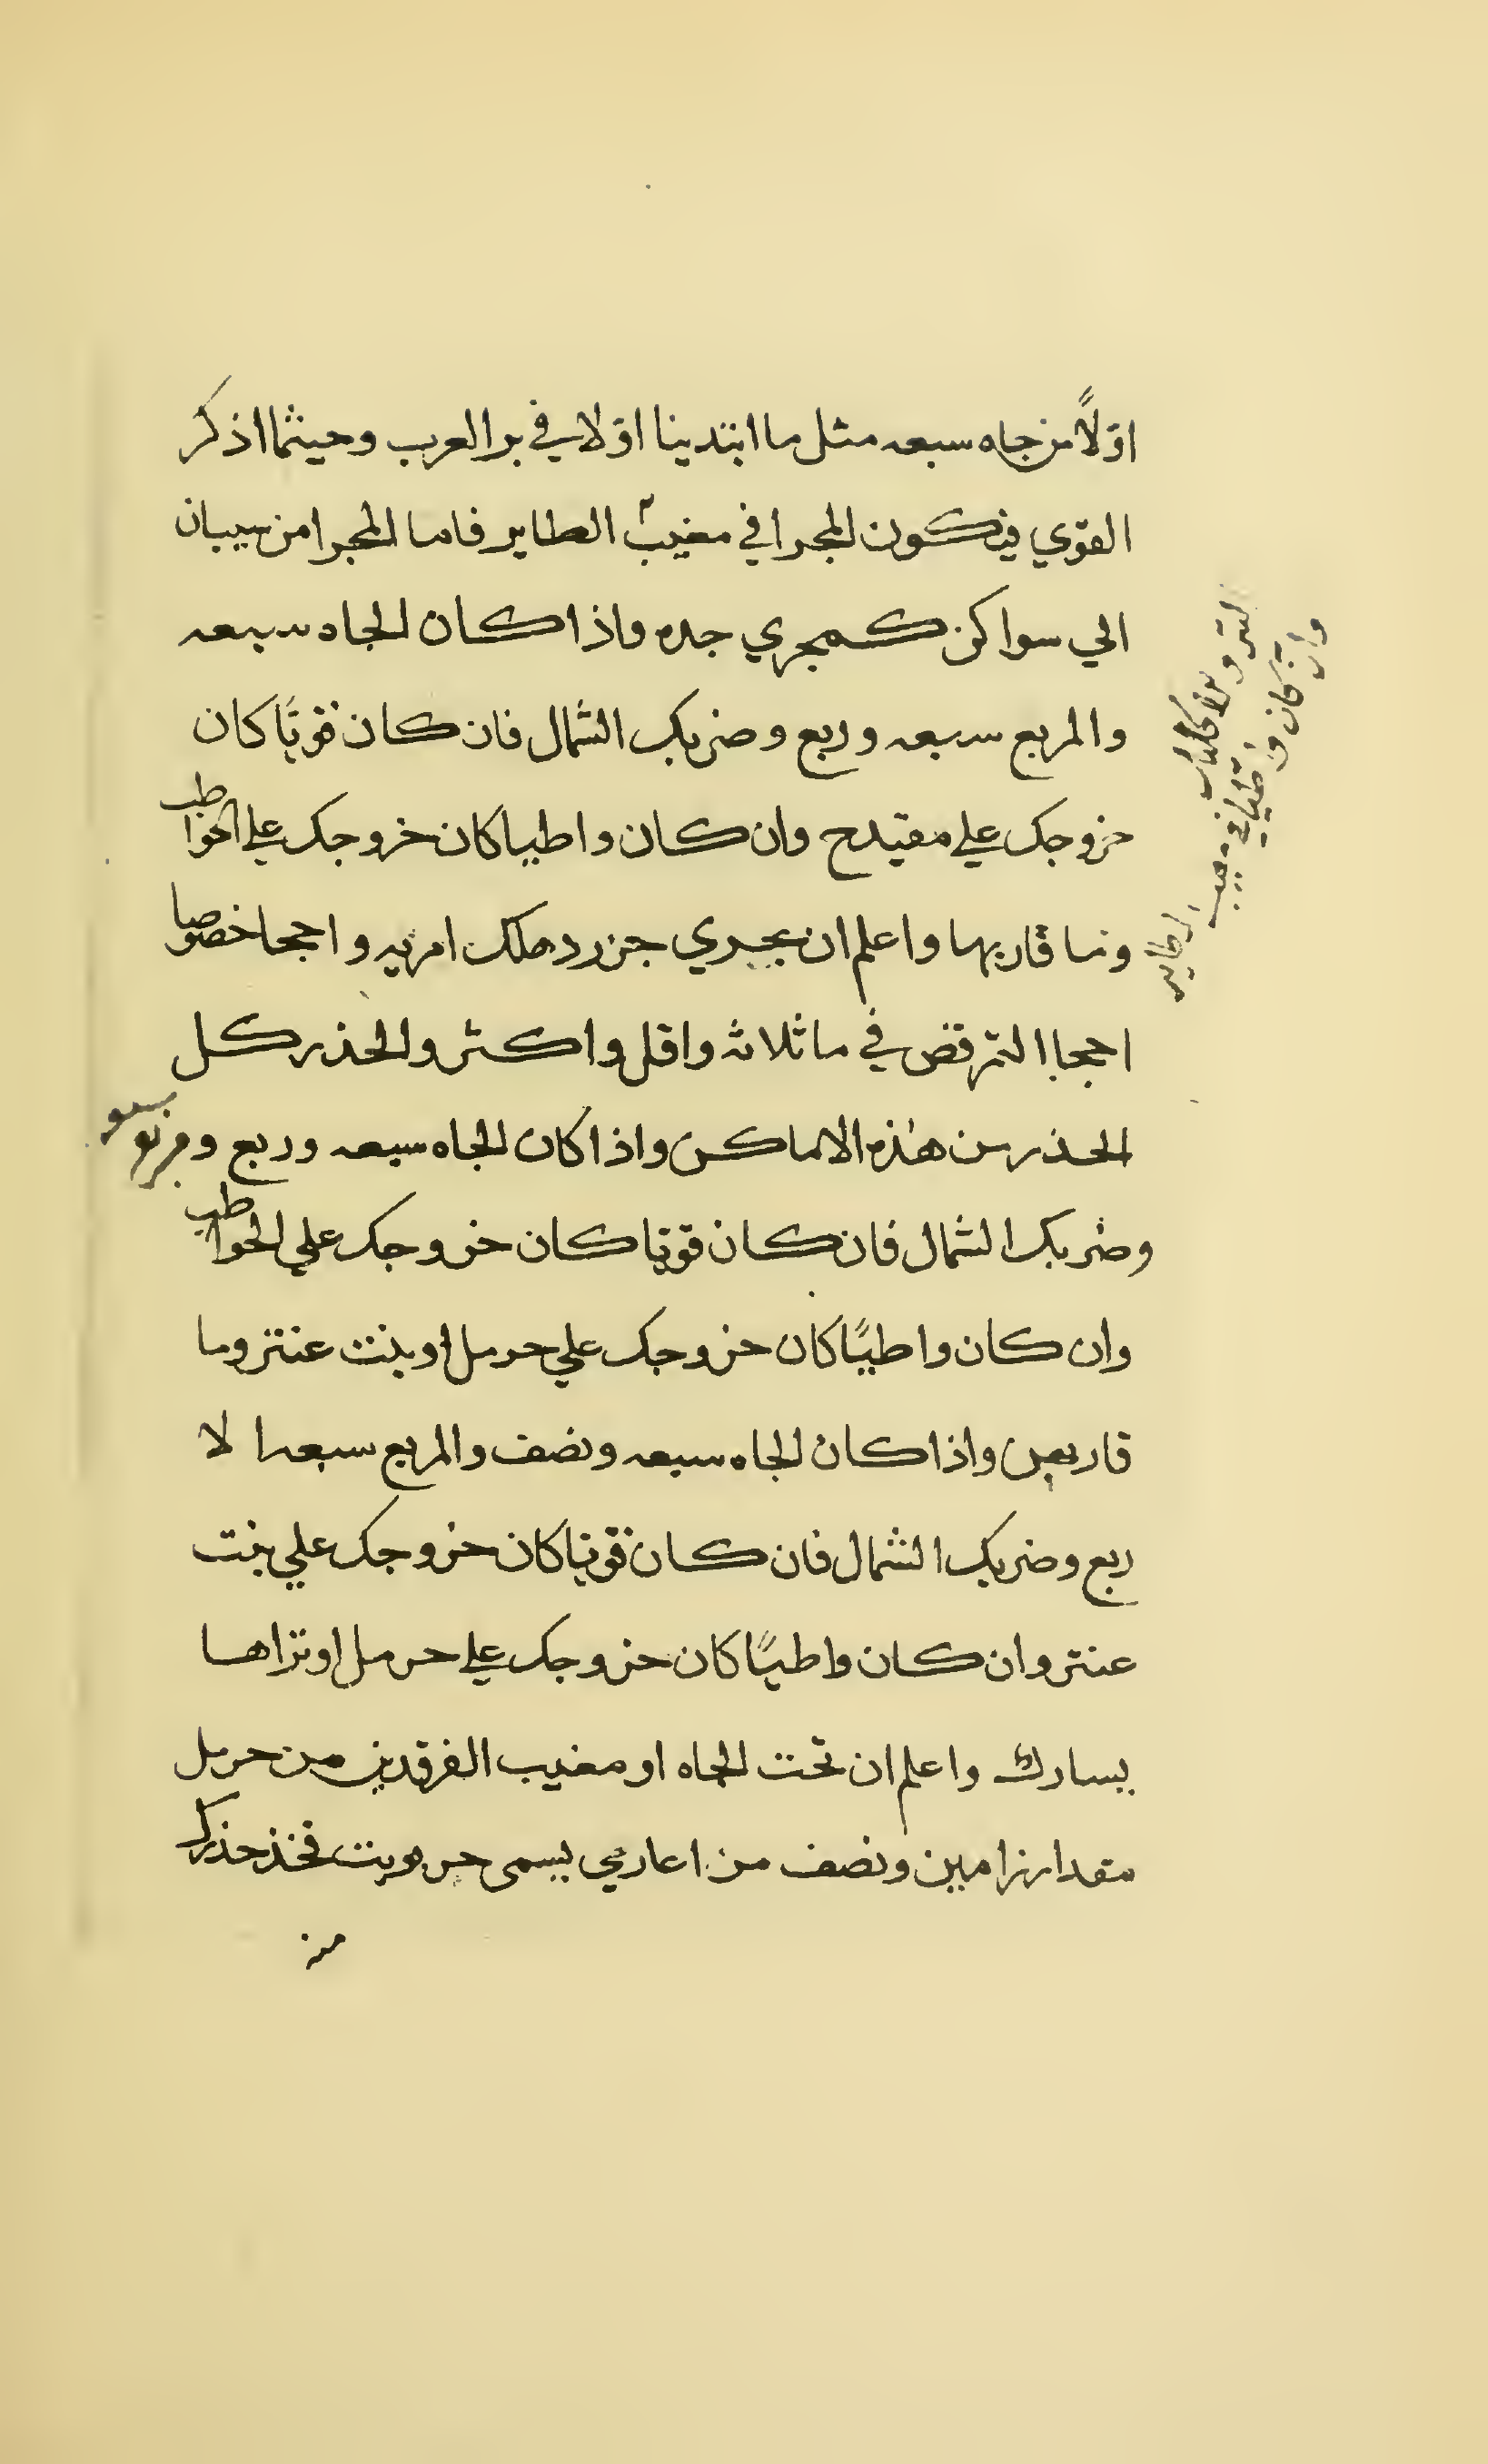 اوّلاً من جاه سبعه مثل ما ابتدينا اوّلا في بر العرب وحيثما اذكر
القوي فيكون المجرا في مغيب الطاير فاما المجرا من سيبان
الي سواكن كمجري جده واذا كان الجاه سبعه
والمربع سبعه وربع وضربك الشمال فان كان قويًا كان
خروجك علي مقيدح وان كان واطيا كان خروجك علي الحواطب
وما قاربها واعلم ان بحري جزر دهلك امريه واججا خصوصا
اججا التمرقض في ما ثلاثه واقل واكثر والحذر كل
الحذر من هذه الاماكن واذا كان الجاه سبعه وربع و
وضربك الشمال فان كان قويا كان خروجك علي الحواطب
وان كان واطيًا كان خروجك علي حرمل او بنت عنتر وما
قاربهن واذا كان الجاه سبعه ونصف والمربع سبعه الا
ربع وضربك الشمال فان كان قويا كان خروجك علي بنت
عنتر وان كان واطيًا كان خروجك علي حرمل او تراها
يسارك واعلم ان تحت الجاه او مغيب الفرقدين من حرمل
مقدار زامين ونصف من اعاري يسمى حربوبت فخذ حذرك
من
وان كان
واطيا في مغيب
الطاير